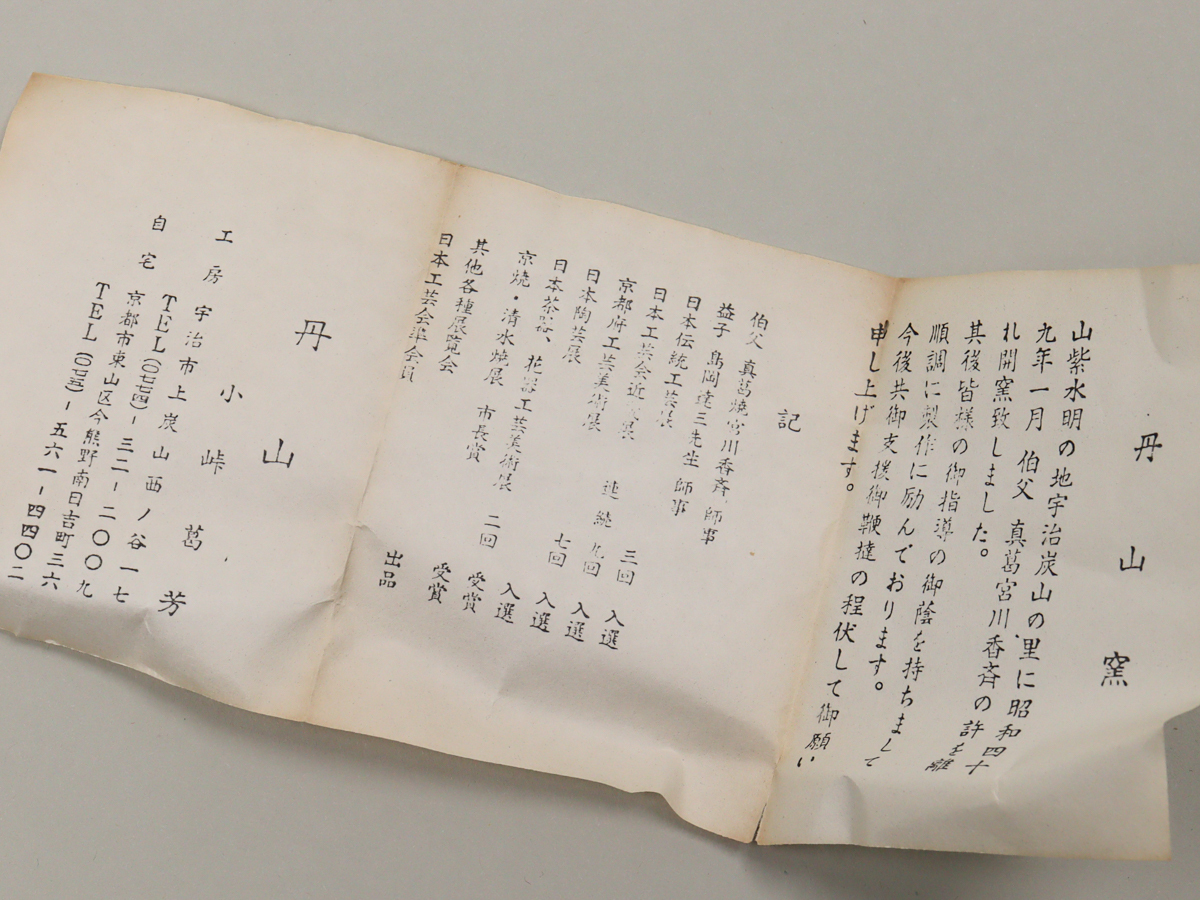 丹山窯
山紫水明の地宇治炭山の里に昭和四十
九年一月 伯父 真葛宮川香斉の許を離
れ開窯致しました。
其後皆様の御指導の御蔭を持ちまして
順調に製作に励んでおります。
今後共御支援御鞭撻の程伏して御願い
申し上げます。
記
伯父 真葛焼宮川香斉 師事
益子 島岡達三先生 師事
日本伝統工芸展 三回 入選
日本工芸会近畿展 連続 九回 入選
京都府工芸美術展 七回 入選
日本陶芸展 入選
日本茶器、花器工芸美術展 受賞
京焼・清水焼展 市長賞 二回 受賞
其他各種展覧会 出品
日本工芸会準会員
丹山
小峠葛芳
工房 宇治市上炭山西ノ谷一七
TEL(〇七七四)-三二-二〇〇九
自宅 京都市東山区今熊野南日吉町三六
TEL(〇七五)-五六一-四四〇二